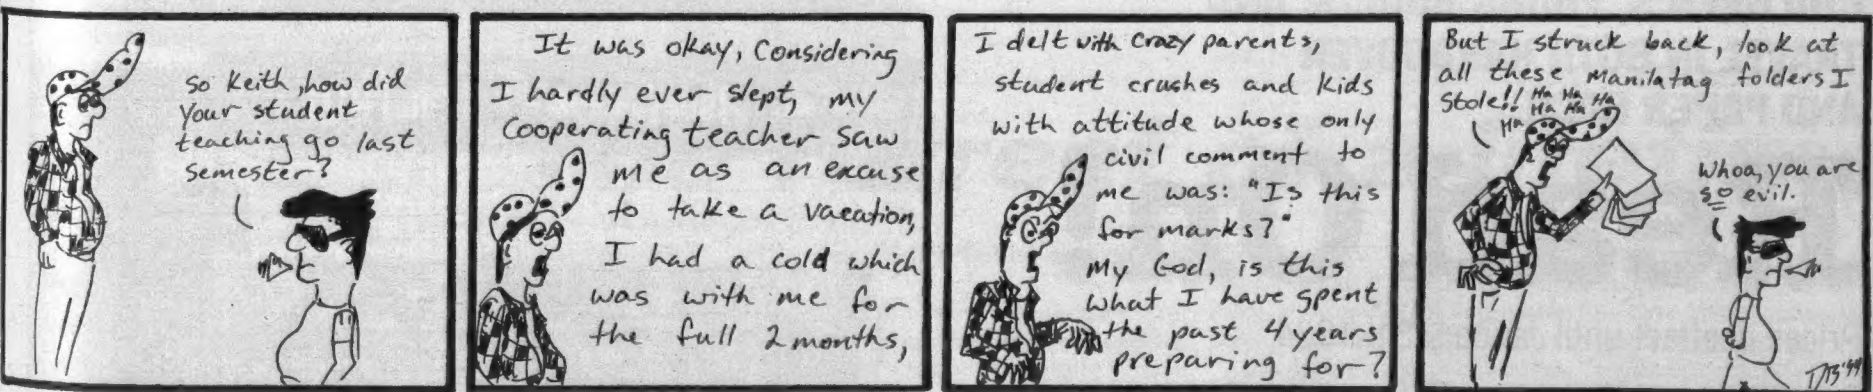 So Keith, how did
your student
teaching go last
semester?
It was okay, considering
I hardly ever slept, my
cooperating teacher saw
me as an excuse
to take a vacation,
I had a cold which
was with me for
the full 2 months,
I delt with crazy parents,
student crushes and kids
with attitude whose only
civil comment to
me was: "Is this
for marks?"
My God, is this
what I have spent
the past 4 years
preparing for?
But I struck back, look at
all these manilatag folders I
stole!! Ha Ha Ha
Ha Ha Ha
Ha
Whoa, you are
so evil.